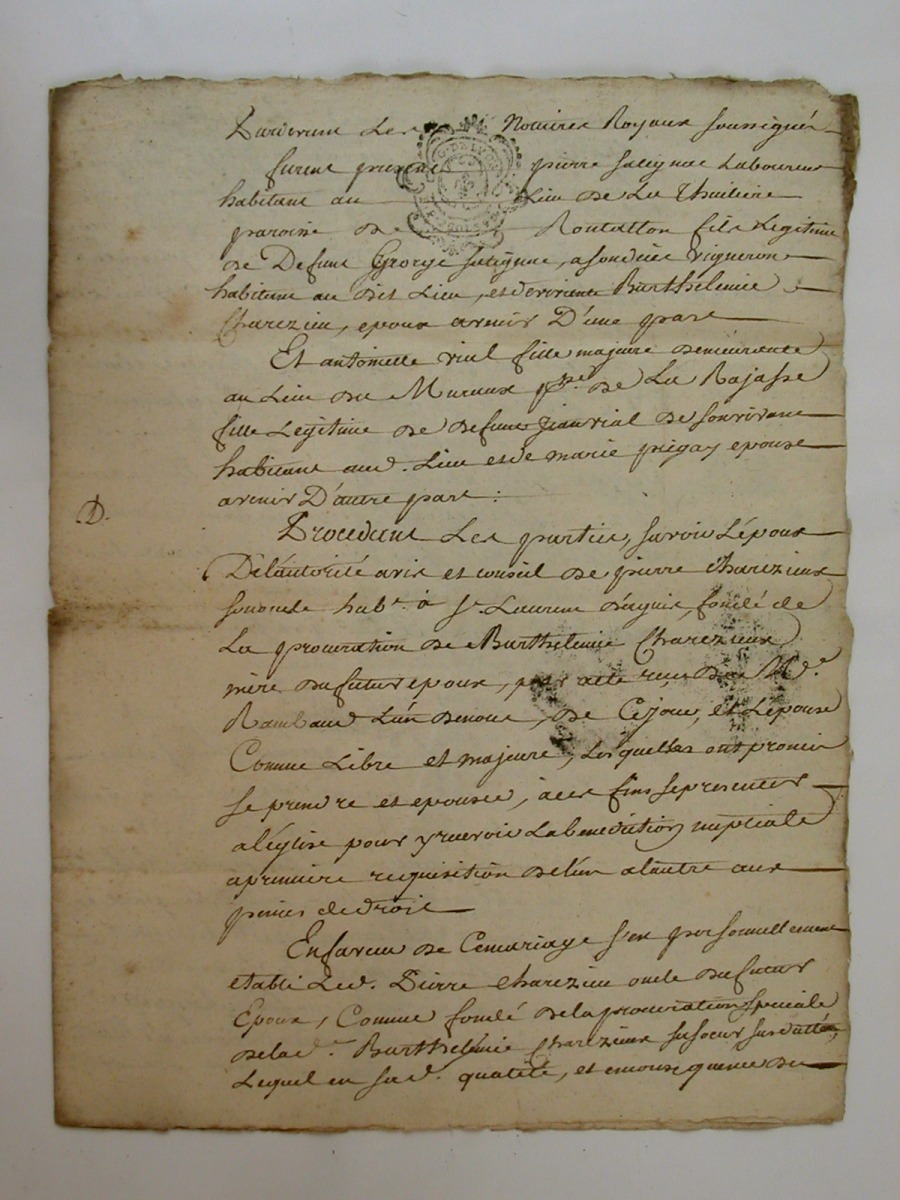 Pardevant Les Notaires Royaux soussignés
furent present pierre salignac Laboureur
habitant au Lieu de La Thuiliere
paroisse de Rontallon fils Legitime
de Defunt George salignac, a son decés vigneron
habitant au dit Lieu, et de vivante Barthelemie
Charezieu, epoux avenir D'une part
Et antoinette vial fille majeure demeurante
au Lieu du Muraux p.sse de La Rajasse
fille Legitime de defunt jean vial de son vivant
habitant aud. Lieu et de marie pregay epouse
avenir D'autre part :
D.
Procedent Les parties, savoir L'époux
De l'autorité avis et conseil de pierre Charezieux
son oncle hab.t à S.t Laurent d'agni, fondé de
La procuration de Barthelemie Charezieux
mère du futur epoux, par acte reçu Du M.e
Rambaud L'un de nous, de Ce jour, et L'épouse
Comme Libre et majeure, Lesquelles ont promis
se prendre et epouser, à ces fins se presenter
a L'église pour y recevoir La benediction nuptiale
a premiere requisition de L'un a L'autre aux
peines de droit
En faveur de Ce mariage s'est personnellement
etabli Led. Pierre Charezieu oncle du futur
Epoux, Comme fondé de la procuration speciale
de lad.e Barthelémie Charezieux sa soeur susdattée,
Lequel en sad. qualité, et en consequence du